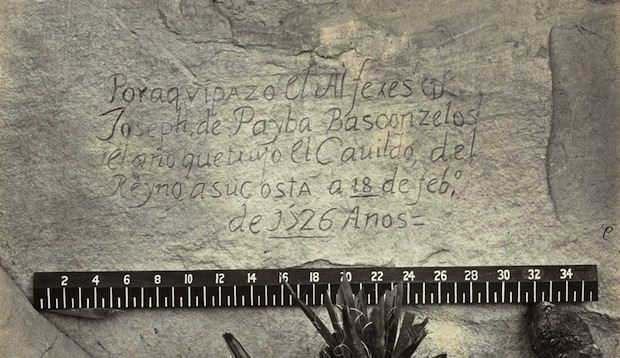 Por aqui pazo el Alferes Dn
Joseph de Payba Basconzelos
el año que trujo el Cauildo del
Reyno a su costa a 18 de febo
de 1526 Anos =
2 4 6 8 10 12 14 16 18 20 22 24 26 28 30 32 34